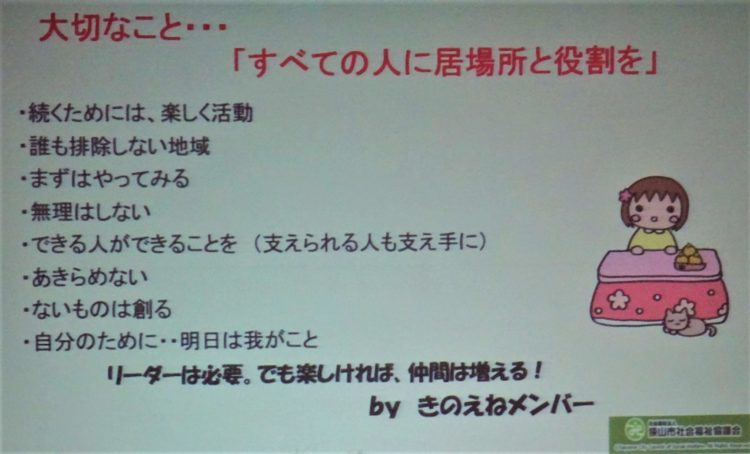 大切なこと・・・
「すべての人に居場所と役割を」
・続くためには、楽しく活動
・誰も排除しない地域
・まずはやってみる
・無理はしない
・できる人ができることを （支えられる人も支え手に）
・あきらめない
・ないものは創る
・自分のために・・明日は我がこと
リーダーは必要。でも楽しければ、仲間は増える！
by きのえねメンバー
社会福祉法人
狭山市社会福祉協議会